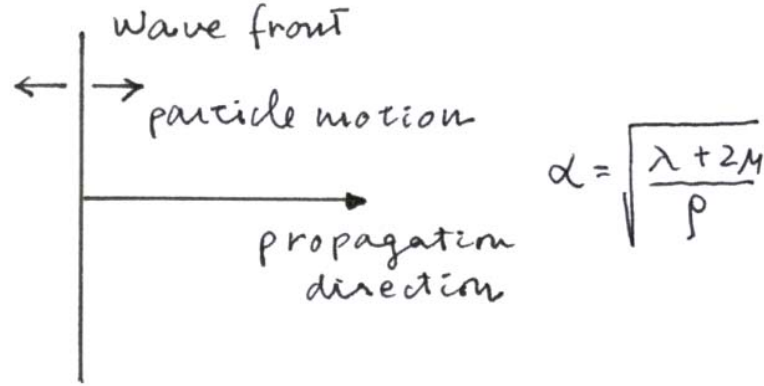 wave front
particle motion
α = √((λ + 2μ)/ρ)
propagation
direction